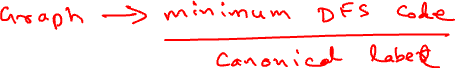 Graph → minimum DFS code
canonical label